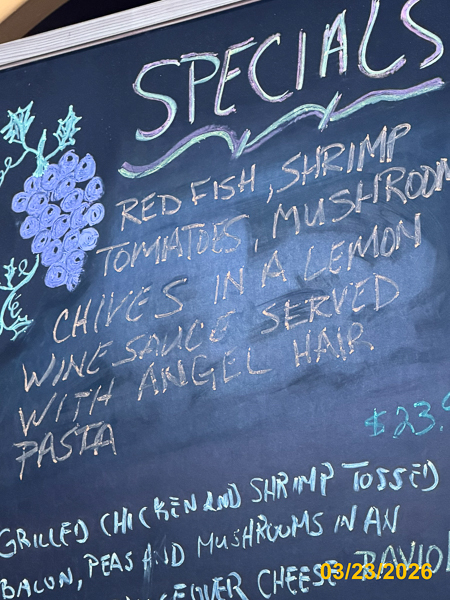 SPECIALS
RED FISH, SHRIMP
TOMATOES, MUSHROOM
CHIVES IN A LEMON
WINE SAUCE SERVED
WITH ANGEL HAIR
PASTA
$23.9
GRILLED CHICKEN AND SHRIMP TOSSED
BACON, PEAS AND MUSHROOMS IN AN
OVER CHEESE RAVIOL
03/23/2026